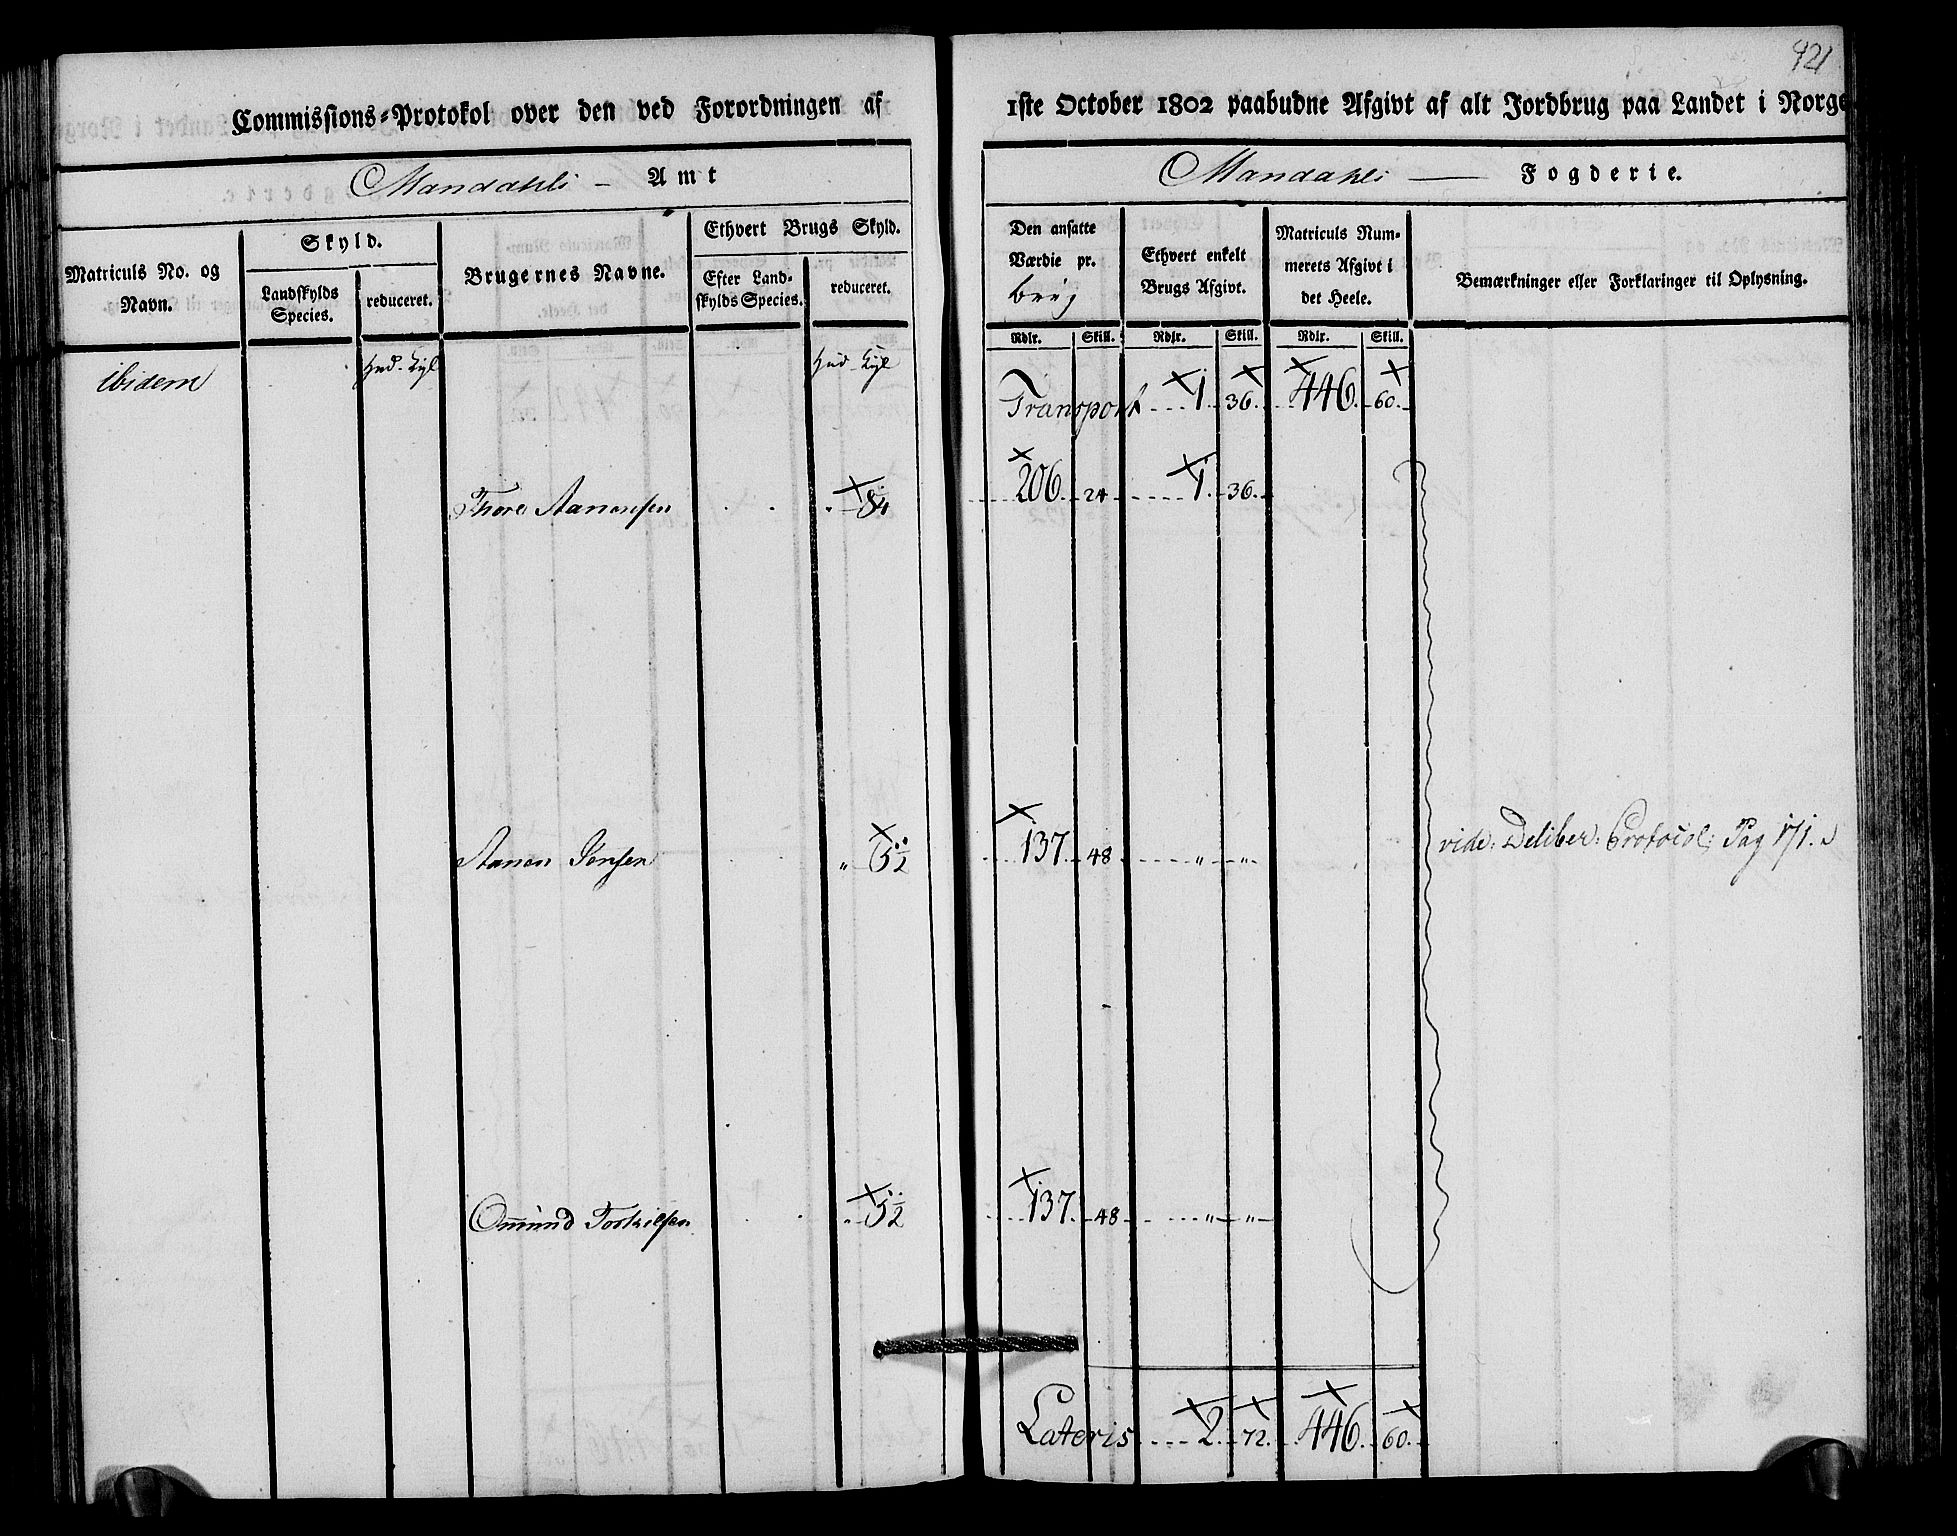 921
Commissions-Protokol over den ved Forordningen af 1ste October 1802 paabudne Afgivt af alt Jordbrug paa Landet i Norge
Mandahls - Amt
Mandahls — Fogderie.
Matriculs No. og Navn.
Skyld.
Landskylds Species.
reduceret.
Brugernes Navne.
Ethvert Brugs Skyld.
Efter Landskylds Species.
reduceret.
Den ansatte Værdie pr.
Ethvert enkelt Brugs Afgivt.
Matriculs Nummerets Afgivt i det Heele.
Bemærkninger eller Forklaringer til Oplysning.
Rdlr. Skill. Rdlr. Skill. Rdlr. Skill.
ibidem
Transport 1. 36. 446. 60.
Thore Aanensen 206. 24 1. 36.
Aanen Jensen 137. 48 " " vide: Deliber: Protocol: Pag 171.
Omund Torkilsen 137. 48 " "
Lateris 2. 72. 446. 60.